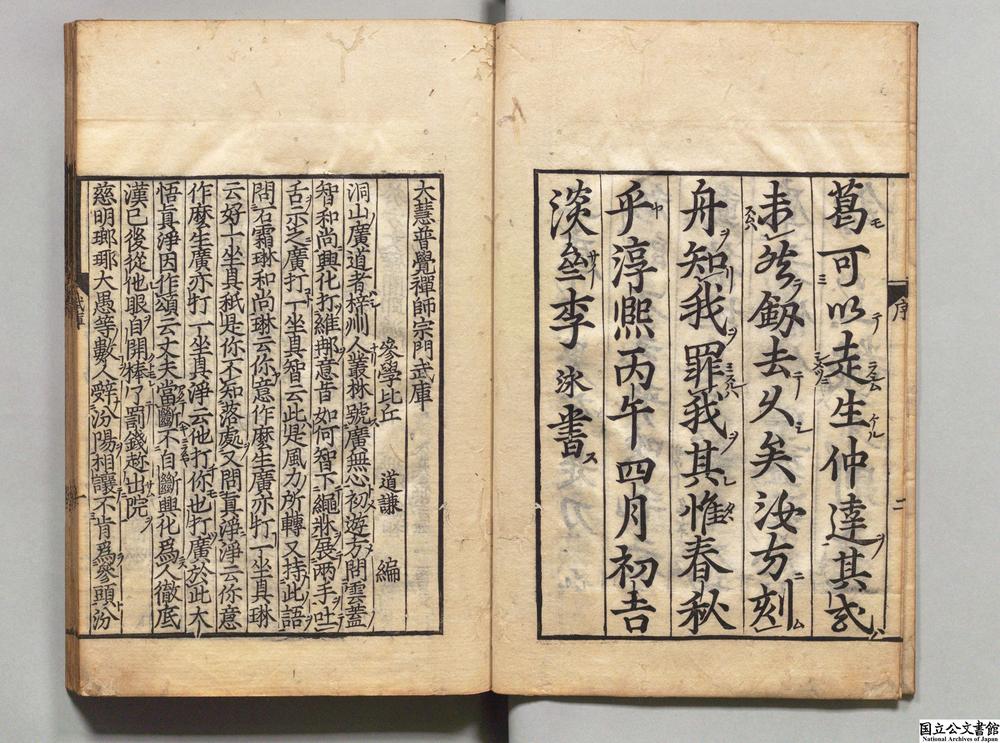 葛可以走生仲達其或
未然劔去久矣汝方刻
舟知我罪我其惟春秋
乎淳熙丙午四月初吉
淡叅李泳書
序
二
大慧普覺禪師宗門武庫
參學比丘 道謙 編
洞山廣道者梓州人叢林號廣無心初遊方問雲蓋
智和尚興化打維那意旨如何智下繩牀展兩手吐
舌示之廣打一坐具智云此是風力所轉又持此語
問石霜琳和尚琳云你意作麼生廣亦打一坐具琳
云好一坐具秪是你不知落處又問真淨淨云你意
作麼生廣亦打一坐具淨云他打你也打廣於此大
悟真淨因作頌云丈夫當斷不自斷興化爲人徹底
漢已後從他眼自開棒了罰錢趂出院
慈明瑯琊大愚等數人辭汾陽相讓不肯爲參頭汾
国立公文書館
National Archives of Japan